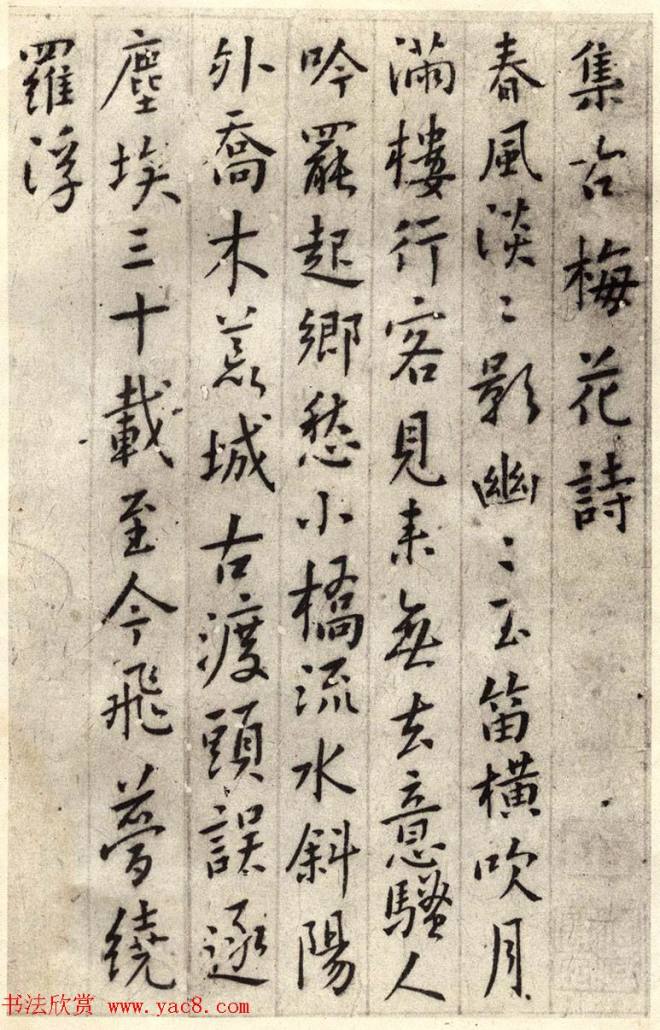 集古梅花詩
春風淡〻影幽〻玉笛橫吹月
滿樓行客見來無去意騷人
吟罷起鄉愁小橋流水斜陽
外喬木荒城古渡頭誤逐
塵埃三十載至今飛夢繞
羅浮
书法欣赏 www.yac8.com